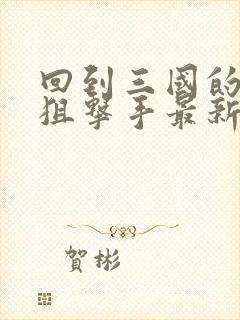 回到三國的
狙撃手最新
賀彬